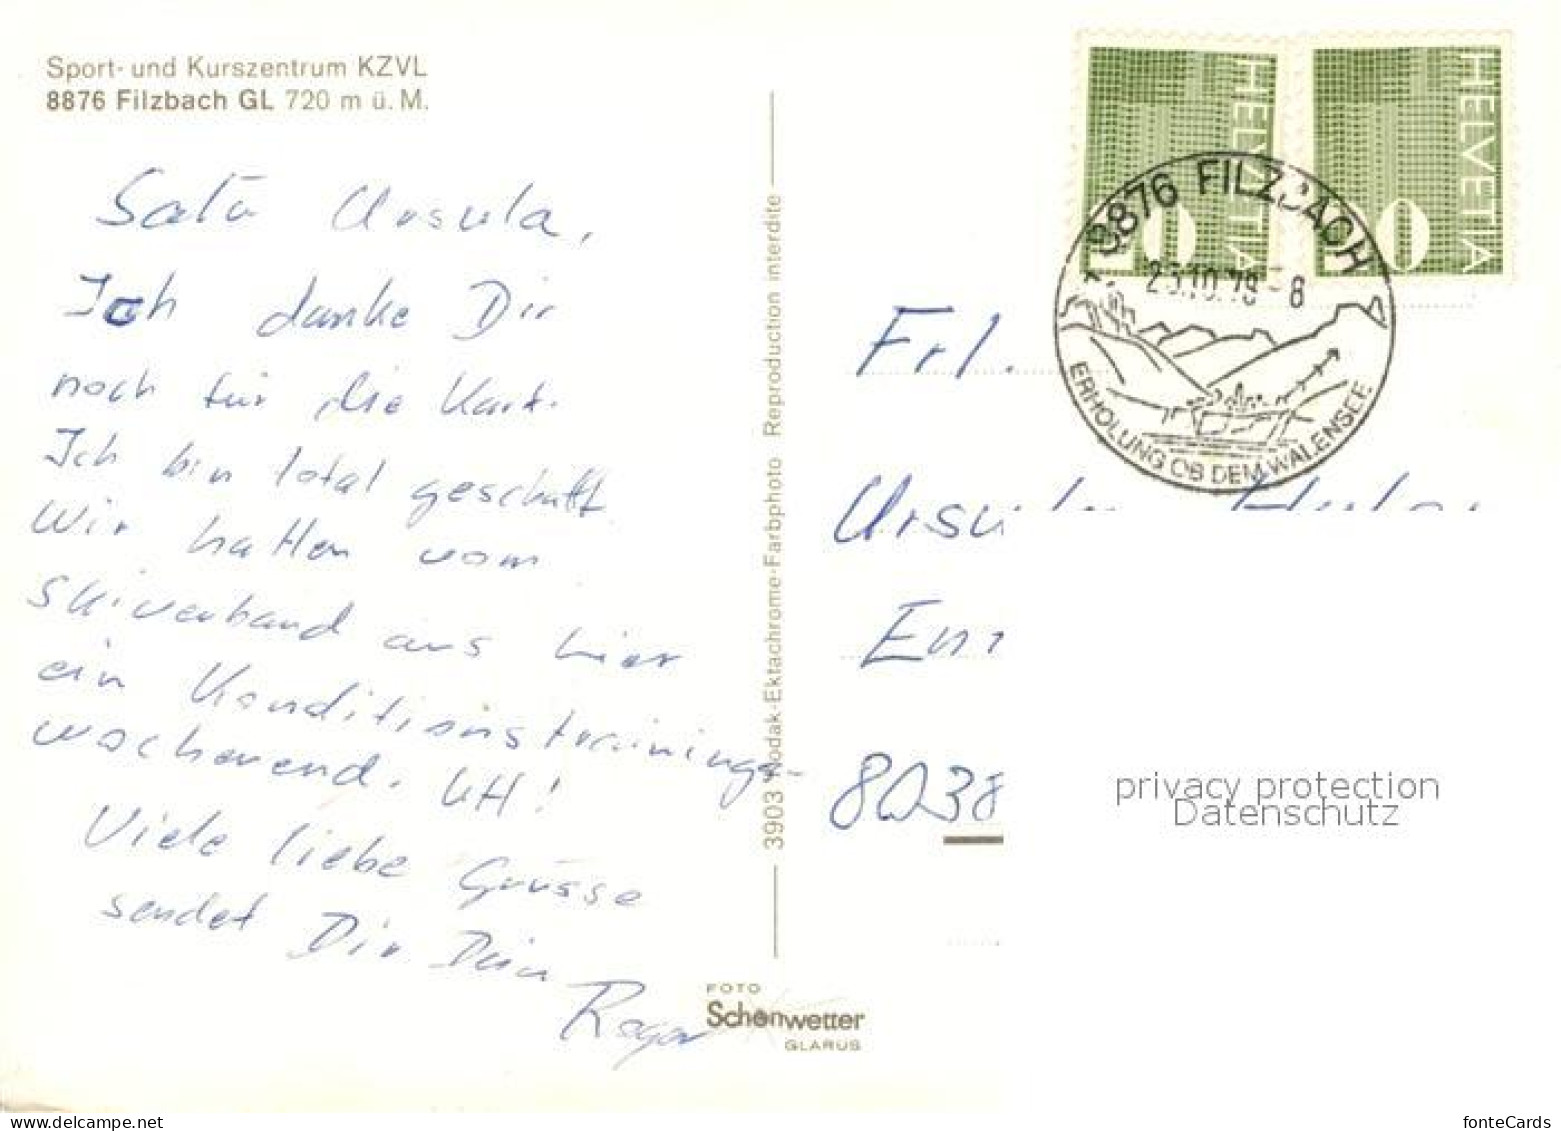 Sport- und Kurszentrum KZVL
8876 Filzbach GL 720 m ü. M.
Ursula,
Ich danke Dir
noch für die Kart.
Ich bin total geschafft
Wir hatten vom
Skiverband aus hier
ein Konditionstrainings-
wochenend. UH!
Viele liebe Grüsse
sendet Dir Dein
Roger
3903 Kodak-Ektachrome-Farbphoto Reproduction interdite
FOTO
Schönwetter
GLARUS
HELVETIA
HELVETIA
8876 FILZBACH
10.79-8
ERHOLUNG OB DEM WALENSEE
Frl.
Ursula
8038
privacy protection
Datenschutz
fonteCards